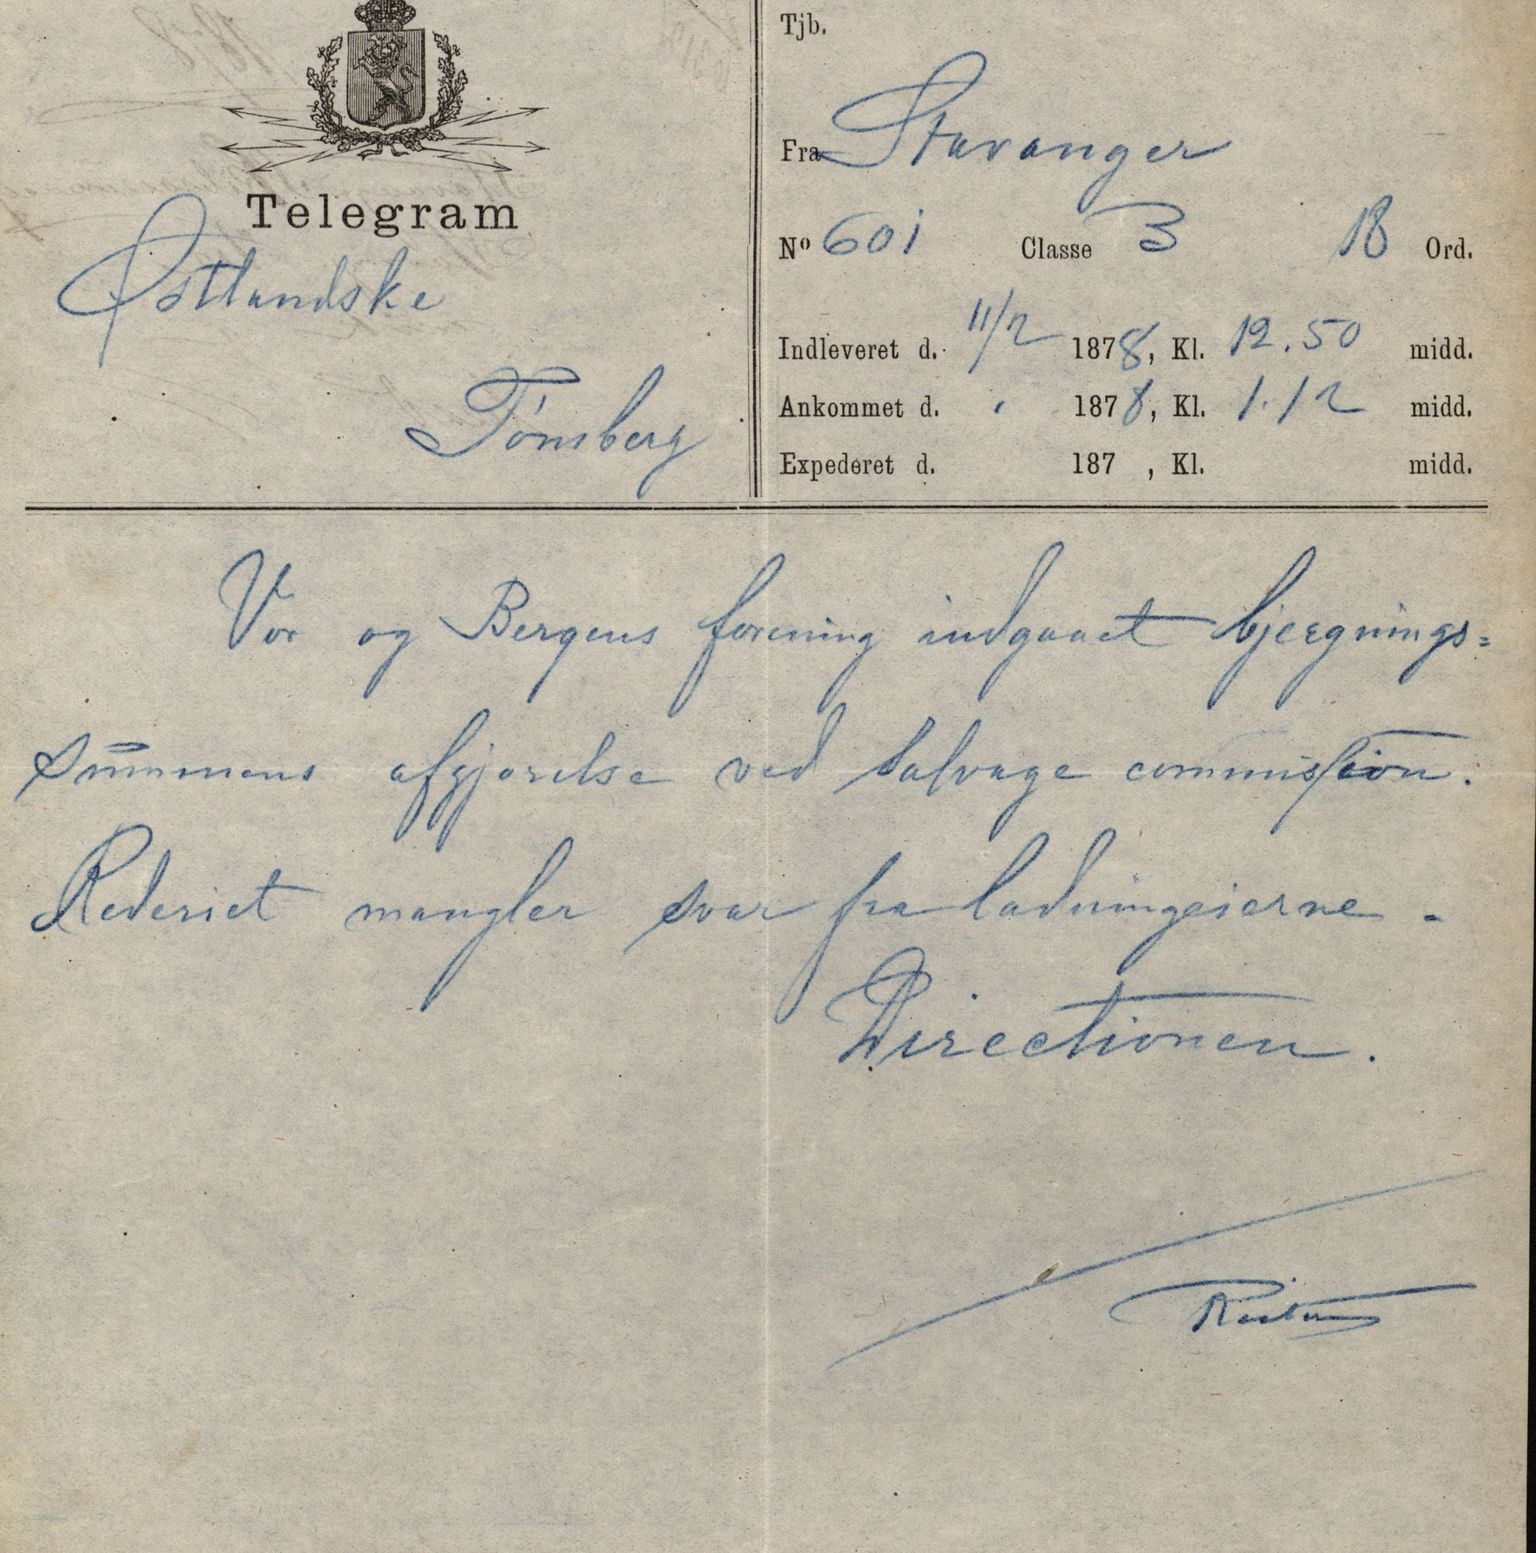 Telegram
Østlandske
Tønsberg
Tjb.
Fra Stavanger
No 601 Classe 3 18 Ord.
Indleveret d. 11/2 1878, Kl. 12.50 midd.
Ankommet d. " 1878, Kl. 1.12 midd.
Expederet d. 187 , Kl. midd.
Vor og Bergens forening indgaaet bjergnings=
summens afgjørelse ved Salvage commission.
Rederiet mangler svar fra ladningseierne -
Directionen.